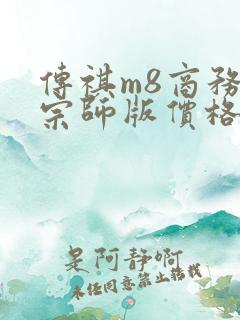 傳祺m8商務
宗師版價格
是阿静啊
未经同意禁止搬栽